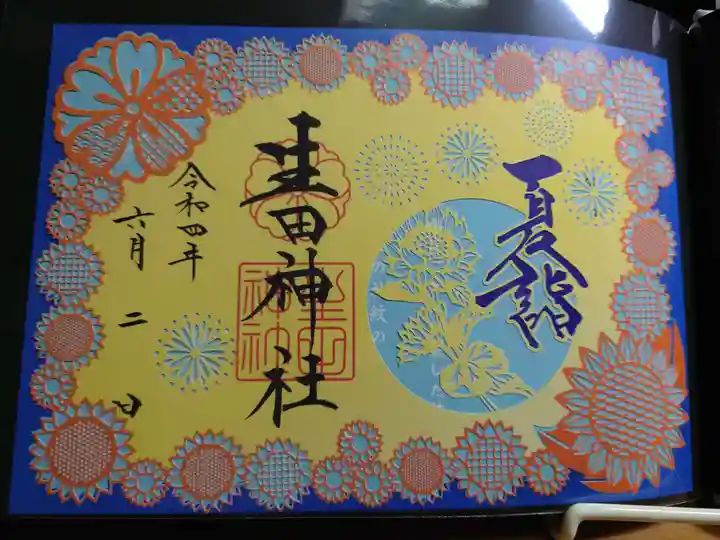 夏詣
紋の
生田神社
令和四年
六月二日